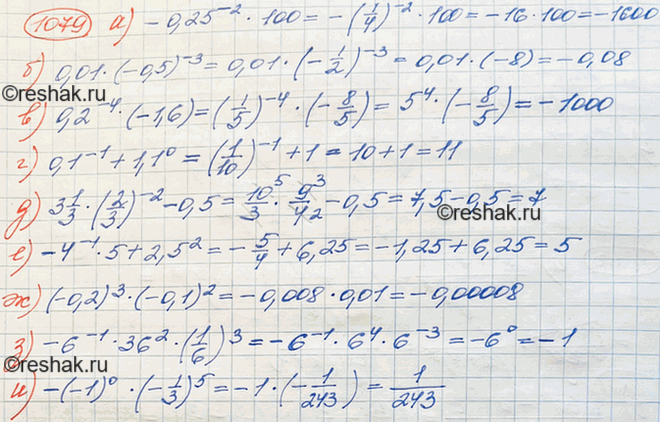 1079 а) -0,25⁻² · 100 = -(1/4)⁻² · 100 = -16 · 100 = -1600
б) 0,01 · (-0,5)⁻³ = 0,01 · (-1/2)⁻³ = 0,01 · (-8) = -0,08
©reshak.ru
©reshak.ru
в) 0,2⁻⁴ · (-1,6) = (1/5)⁻⁴ · (-8/5) = 5⁴ · (-8/5) = -1000
г) 0,1⁻¹ + 1,1⁰ = (1/10)⁻¹ + 1 = 10 + 1 = 11
д) 3 1/3 · (2/3)⁻² - 0,5 = 10⁵/3 · 9³/4₂ - 0,5 = 7,5 - 0,5 = 7
©reshak.ru
©reshak.ru
е) -4⁻¹ · 5 + 2,5² = -5/4 + 6,25 = -1,25 + 6,25 = 5
ж) (-0,2)³ · (-0,1)² = -0,008 · 0,01 = -0,00008
з) -6⁻¹ · 36² · (1/6)³ = -6⁻¹ · 6⁴ · 6⁻³ = -6⁰ = -1
©reshak.ru
©reshak.ru
и) -(-1)⁰ · (-1/3)⁵ = -1 · (-1/243) = 1/243